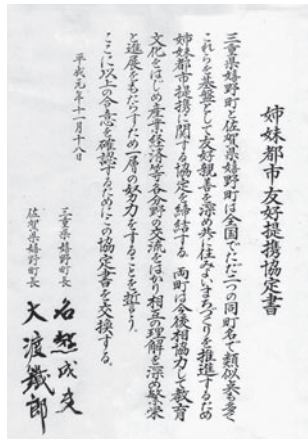 姉妹都市友好提携協定書
三重県嬉野町と佐賀県嬉野町は全国でただ二つの同町名で類似点も多く
これらを基盤として友好親善を深め共に住みよいまちづくりを推進するため
姉妹都市提携に関する協定を締結する。両町は今後相協力して教育
文化をはじめ産業経済等各分野の交流をはかり相互の理解を深め繁栄
と進展をもたらすため一層の努力をすることを誓う。
ここに以上の合意を確認するためにこの協定書を交換する。
平成元年十一月十八日
三重県嬉野町長
佐賀県嬉野町長